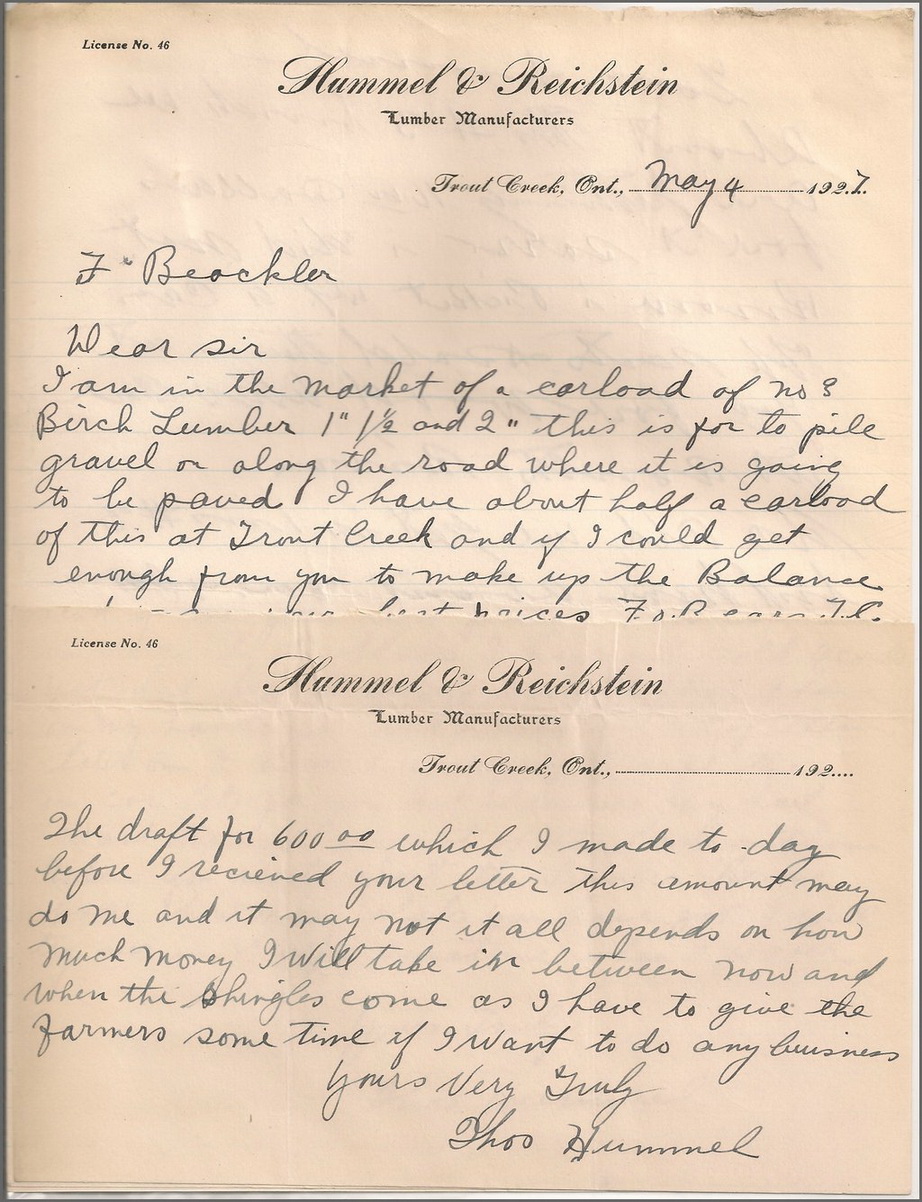 License No. 46
Hummel & Reichstein
Lumber Manufacturers
Trout Creek, Ont., May 4 1927.
F. Beackler
Dear sir
I am in the market of a carload of no 3
Birch Lumber 1" 1½ and 2" this is for to pile
gravel on along the road where it is going
to be paved I have about half a carload
of this at Trout Creek and if I could get
enough from you to make up the Balance
best prices
License No. 46
Hummel & Reichstein
Lumber Manufacturers
Trout Creek, Ont., 192....
The draft for 600 00 which I made to-day
before I recieved your letter this amount may
do me and it may not it all depends on how
much money I will take in between now and
when the shingles come as I have to give the
farmers some time if I want to do any buisness
Yours Very Truly
Thos Hummel